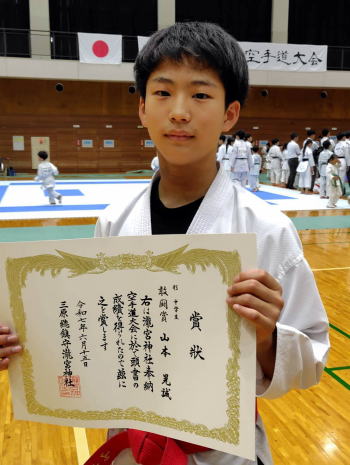 空手道大会
賞状
形 中学生
敢闘賞 山本 晃誠
右は瀧宮神社奉納
空手道大会に於て頭書の
成績を得られたので茲に
之を賞します
令和七年六月十五日
三原総鎮守瀧宮神社
山